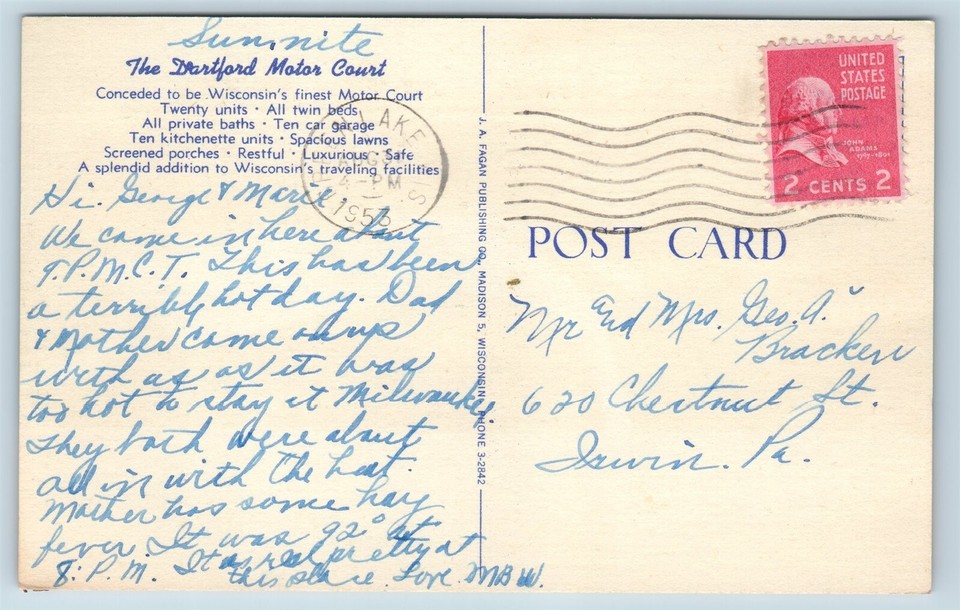 Sun. nite
The Dartford Motor Court
Conceded to be Wisconsin's finest Motor Court
Twenty units · All twin beds
All private baths · Ten car garage
Ten kitchenette units · Spacious lawns
Screened porches · Restful · Luxurious · Safe
A splendid addition to Wisconsin's traveling facilities
Hi. George & Marie
We came in here about
7. P.M. C.T. This has been
a terribly hot day. Dad
& Mother come on up
with us as it was
too hot to stay at Milwaukee.
They both were about
all in with the heat.
Mother has some hay
fever. It was 92° at
8. P.M. It is real pretty at
this place. Love. M B W.
J. A. FAGAN PUBLISHING CO., MADISON 5, WISCONSIN PHONE 3-2842
LAKE
4 - PM
WIS
UNITED
STATES
POSTAGE
JOHN
ADAMS
1797-1801
2 CENTS 2
POST CARD
Mr and Mrs. Geo. A.
Bracken
620 Chestnut St.
Irwin. Pa.